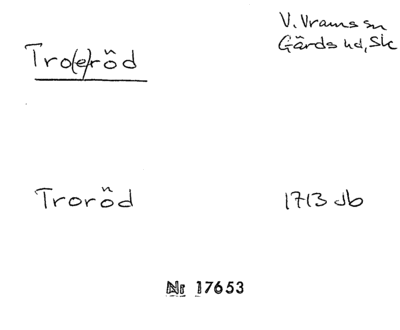 V. Vrams sn
Gärds hd, Sk
Tro(e)röd
Troröd
1713 Jb
Nr 17653